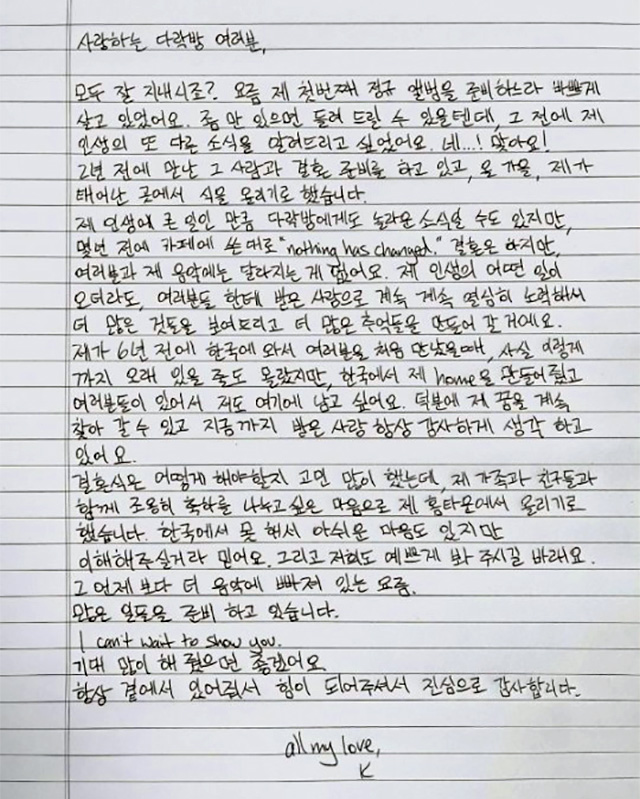 사랑하는 다락방 여러분,
모두 잘 지내시죠? 요즘 제 첫번째 정규 앨범을 준비하느라 바쁘게
살고 있었어요. 좀만 있으면 들려 드릴 수 있을텐데, 그 전에 제
인생의 또 다른 소식을 알려드리고 싶었어요. 네...! 맞아요!
2년 전에 만난 그 사람과 결혼 준비를 하고 있고, 올 가을, 제가
태어난 곳에서 식을 올리기로 했습니다.
제 인생에 큰 일인 만큼 다락방에게도 놀라운 소식일 수도 있지만,
몇번 전에 카페에 쓴대로 "nothing has changed." 결혼은 하지만,
여러분과 제 음악에는 달라지는 게 없어요. 제 인생의 어떤 일이
오더라도, 여러분들 한테 받은 사랑으로 계속 계속 열심히 노력해서
더 많은 것들을 보여드리고 더 많은 추억들을 만들어 갈 거에요.
제가 6년 전에 한국에 와서 여러분을 처음 만났을때, 사실 이렇게
까지 오래 있을 줄도 몰랐지만, 한국에서 제 home을 만들어줬고
여러분들이 있어서 저도 여기에 남고 싶어요. 덕분에 제 꿈을 계속
찾아 갈 수 있고 지금까지 받은 사랑 항상 감사하게 생각 하고
있어요.
결혼식은 어떻게 해야할지 고민 많이 했는데, 제 가족과 친구들과
함께 조용히 축하를 나누고 싶은 마음으로 제 홈타운에서 올리기로
했습니다. 한국에서 못 해서 아쉬운 마음도 있지만
이해해주실거라 믿어요. 그리고 저희도 예쁘게 봐 주시길 바래요.
그 언제 보다 더 음악에 빠져 있는 요즘,
많은 일들을 준비 하고 있습니다.
I can't wait to show you.
기대 많이 해 줬으면 좋겠어요
항상 곁에서 있어줘서 힘이 되어주셔서 진심으로 감사합니다.
all my love,
K